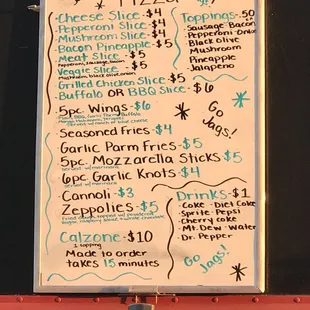 Pizza
Cheese Slice - $4
Pepperoni Slice - $4
Mushroom Slice - $4
Bacon Pineapple - $5
Meat Slice - $5
Pepperoni, Sausage, Bacon
Veggie Slice - $5
Mushroom, black olive, onion
Grilled Chicken Slice $5
Buffalo OR BBQ Slice - $6
5pc Wings - $6
Seasoned Fries - $4
Garlic Parm Fries - $5
5pc Mozzarella Sticks $5
Served w/ marinara
6pc Garlic Knots - $4
Served w/ marinara
Cannoli - $3
Zeppolies - $5
Calzone - $10
1 topping
Made to order
takes 15 minutes
Toppings - 50
Sausage Bacon
Pepperoni Onion
Black olive
Mushroom
Pineapple
Jalapeno
Go
Jags!
Drinks - $1
Coke Diet Coke
Sprite Pepsi
Cherry Coke
Mt. Dew Water
Dr. Pepper
Go
Jags!